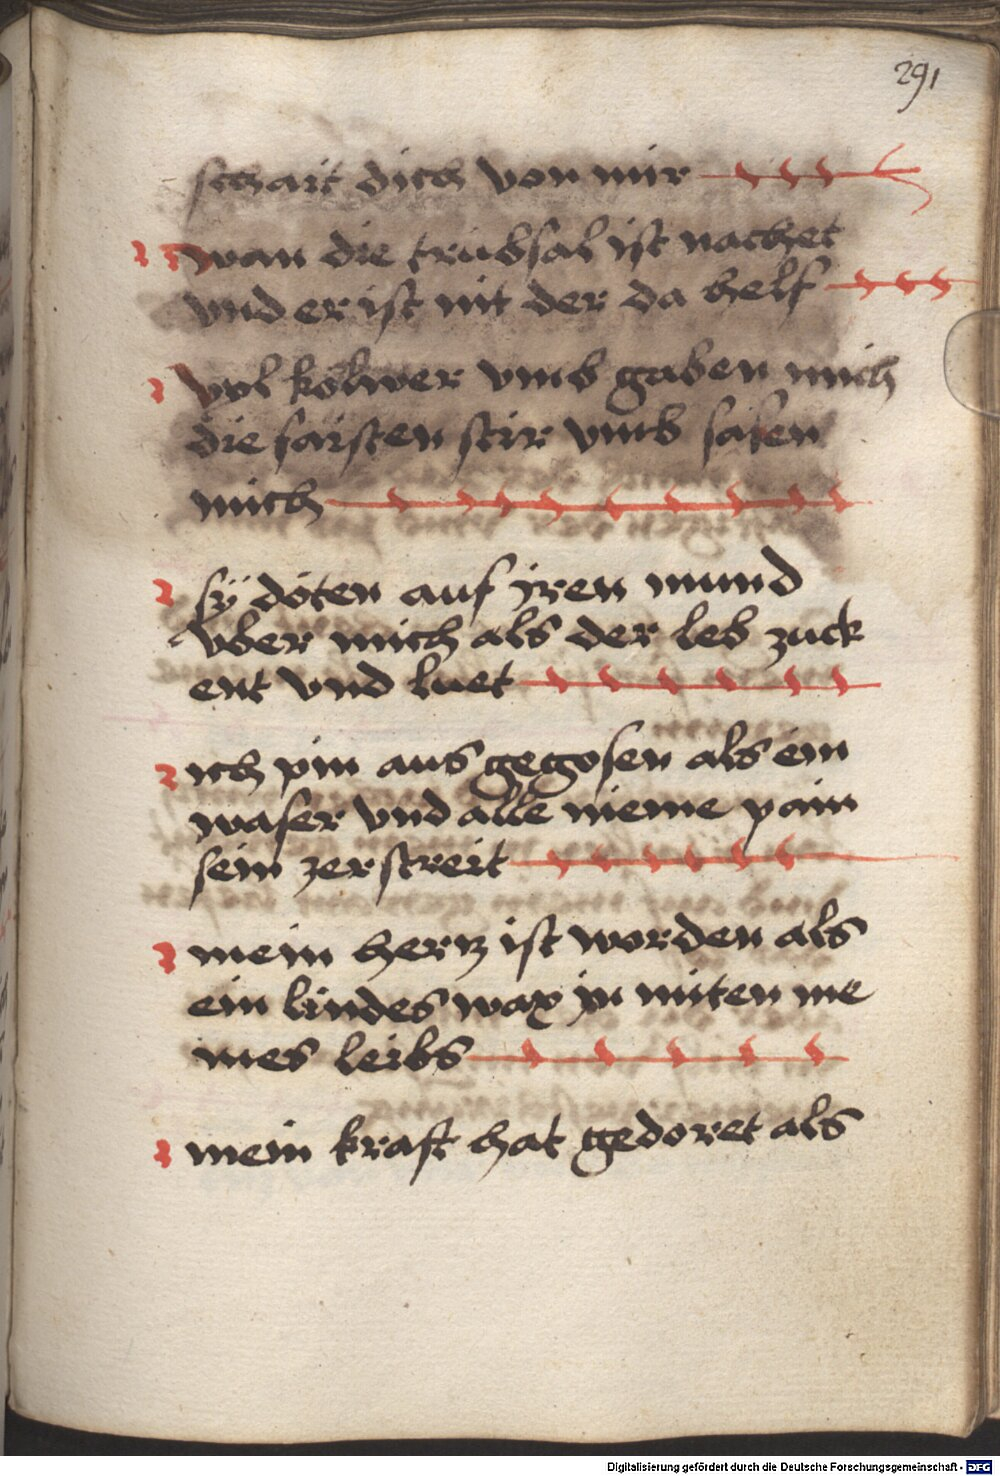 291
schait dich von mir
wan die trubsal ist nachet
vnd er ist nit der da helf
vyl kölwer vmb gaben mich
die faisten stir vmb sasen
mich
sÿ doten auf jren mund
vber mich als der leb zuck
ent vnd luet
ich pin aus gegosen als ein
waser vnd alle nieme pain
sein zerstreit
mein hertz ist worden als
ein lindes wax in miten me
ines leibs
mein kraft hat gedoret als
Digitalisierung gefördert durch die Deutsche Forschungsgemeinschaft - DFG